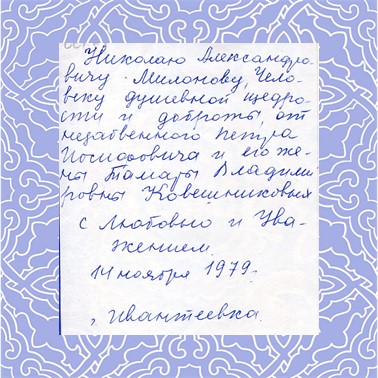 Николаю Александро-
вичу Милонову, Чело-
веку душевной щедро-
сти и доброты, от
незабвенного Петра
Иосифовича и его же-
ны Тамары Владими
ровны Ковешниковых
с Любовью и Ува-
жением.
14 ноября 1979.
Ивантеевка.